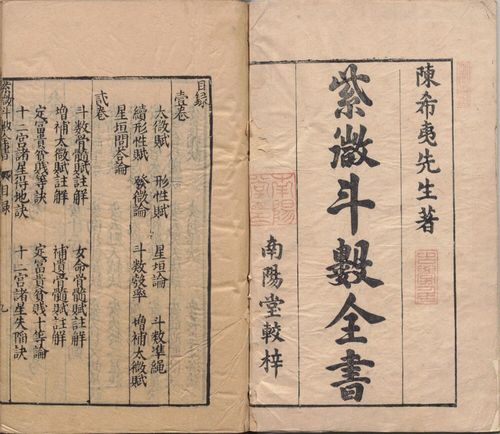 陳希夷先生著
紫微斗數全書
南陽堂較梓
南陽
堂
目錄
壹卷
太微賦 形性賦 星垣論 斗數準繩
續形性賦 發微論 斗數彀率 增補太微賦
星垣問答論
貳卷
斗數骨髓賦註解 女命骨髓賦註解
增補太微賦註解 補遺骨髓賦註解
定富貴貧賤等訣 定富貴貧賤十等論
十二宮諸星得地訣 十二宮諸星失陷訣
紫微斗數全書 目錄